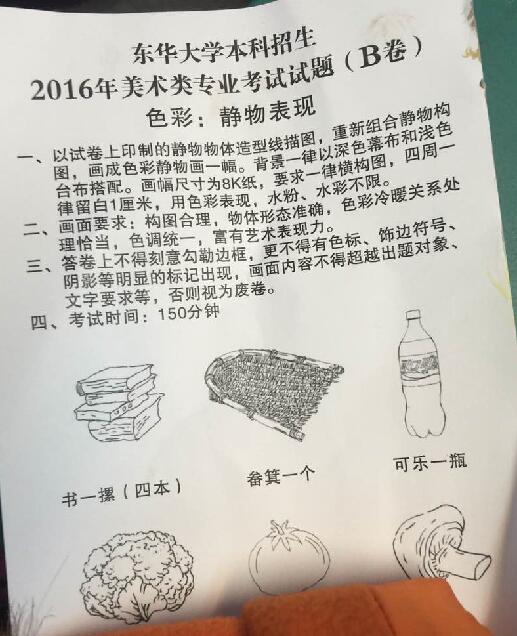 东华大学本科招生
2016年美术类专业考试试题（B卷）
色彩：静物表现
一、以试卷上印制的静物物体造型线描图，重新组合静物构
图，画成色彩静物画一幅。背景一律以深色幕布和浅色
台布搭配。画幅尺寸为8K纸，要求一律横构图，四周一
律留白1厘米，用色彩表现，水粉、水彩不限。
二、画面要求：构图合理，物体形态准确，色彩冷暖关系处
理恰当，色调统一，富有艺术表现力。
三、答卷上不得刻意勾勒边框，更不得有色标、饰边符号、
阴影等明显的标记出现，画面内容不得超越出题对象、
文字要求等，否则视为废卷。
四、考试时间：150分钟
书一摞（四本）
畚箕一个
可乐一瓶